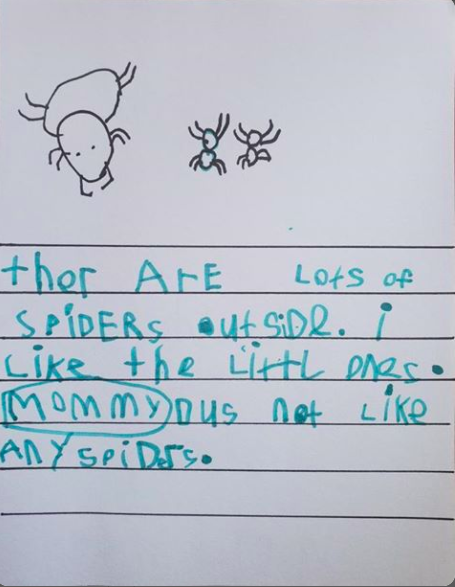 ther ArE Lots of
SPiDERs outSiDe. i
Like the LittL ones.
Mommy Dus not Like
Any spiDers.